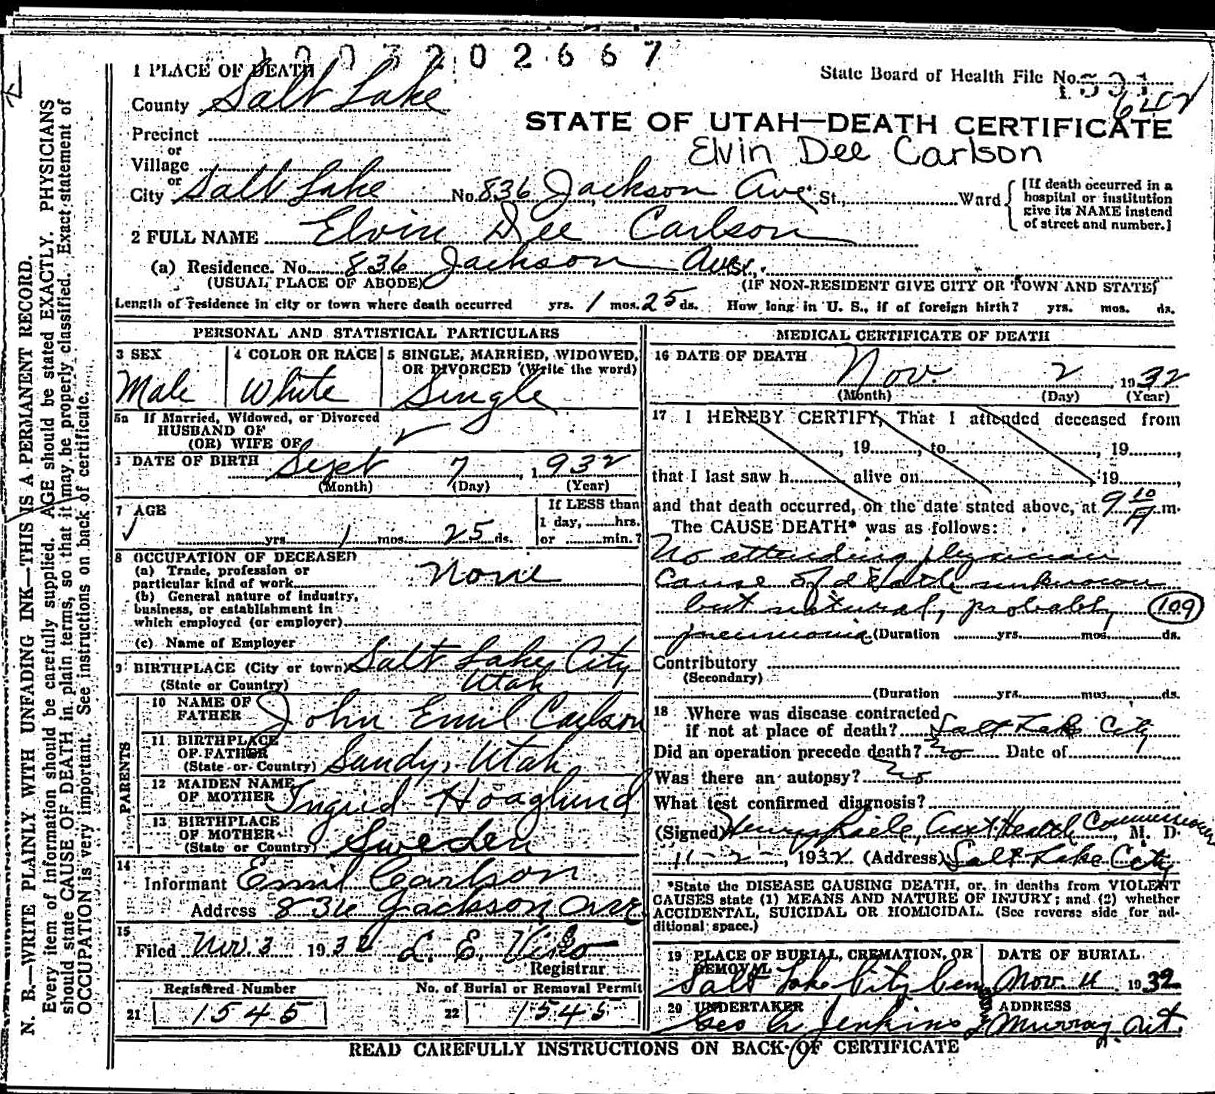 1 0 0 3 2 0 2 6 6 7
1 PLACE OF DEATH
State Board of Health File No.
County Salt Lake
STATE OF UTAH—DEATH CERTIFICATE
Precinct
Elvin Dee Carlson
or
Village
or
City Salt Lake No. 836 Jackson Ave St., Ward
[If death occurred in a hospital or institution give its NAME instead of street and number.]
2 FULL NAME Elvin Dee Carlson
(a) Residence. No. 836 Jackson Ave St.,
(USUAL PLACE OF ABODE) (IF NON-RESIDENT GIVE CITY OR TOWN AND STATE)
Length of residence in city or town where death occurred yrs. 1 mos. 25 ds. How long in U. S., if of foreign birth? yrs. mos. ds.
PERSONAL AND STATISTICAL PARTICULARS
3 SEX 4 COLOR OR RACE 5 SINGLE, MARRIED, WIDOWED, OR DIVORCED (Write the word)
Male White Single
5a If Married, Widowed, or Divorced
HUSBAND OF
(OR) WIFE OF
DATE OF BIRTH Sept 7, 1932
(Month) (Day) (Year)
7 AGE
If LESS than
1 day, hrs.
yrs. 1 mos. 25 ds. or min.?
8 OCCUPATION OF DECEASED
(a) Trade, profession or
particular kind of work None
(b) General nature of industry,
business, or establishment in
which employed (or employer)
(c) Name of Employer
9 BIRTHPLACE (City or town) Salt Lake City
(State or Country) Utah
PARENTS
10 NAME OF
FATHER John Emil Carlson
11 BIRTHPLACE
OF FATHER
(State or Country) Sandy, Utah
12 MAIDEN NAME
OF MOTHER Ingrid Hoaglund
13 BIRTHPLACE
OF MOTHER
(State or Country) Sweden
14
Informant Emil Carlson
Address 836 Jackson Ave
15
Filed Nov. 3 1932 L. E. Viko
Registrar
Registered Number No. of Burial or Removal Permit
21 1545 22 1545
MEDICAL CERTIFICATE OF DEATH
16 DATE OF DEATH
Nov. 2, 1932
(Month) (Day) (Year)
17 I HEREBY CERTIFY, That I attended deceased from
, 19 , to , 19 ,
that I last saw h alive on , 19 ,
and that death occurred, on the date stated above, at 9 10 A m.
The CAUSE DEATH* was as follows:
No attending physician
Cause of death unknown
but natural, probably 109
pneumonia (Duration yrs. mos. ds.
Contributory
(Secondary)
(Duration yrs. mos. ds.
18 Where was disease contracted
if not at place of death? Salt Lake City
Did an operation precede death? No Date of
Was there an autopsy? No
What test confirmed diagnosis?
(Signed) Health Commissioner, M. D.
11-2-, 1932 (Address) Salt Lake City
*State the DISEASE CAUSING DEATH, or, in deaths from VIOLENT
CAUSES state (1) MEANS AND NATURE OF INJURY; and (2) whether
ACCIDENTAL, SUICIDAL OR HOMICIDAL. (See reverse side for ad-
ditional space.)
19 PLACE OF BURIAL, CREMATION, OR REMOVAL DATE OF BURIAL
Salt Lake City Cem Nov. 4 1932
20 UNDERTAKER ADDRESS
Geo A Jenkins Murray Ut.
READ CAREFULLY INSTRUCTIONS ON BACK OF CERTIFICATE
N. B.—WRITE PLAINLY WITH UNFADING INK—THIS IS A PERMANENT RECORD.
Every item of information should be carefully supplied. AGE should be stated EXACTLY. PHYSICIANS
should state CAUSE OF DEATH in plain terms, so that it may be properly classified. Exact statement of
OCCUPATION is very important. See instructions on back of certificate.